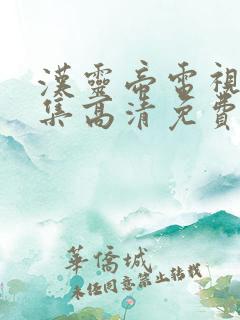 漢靈帝電視
集高清免費
華僑城
未經同意禁止轉載